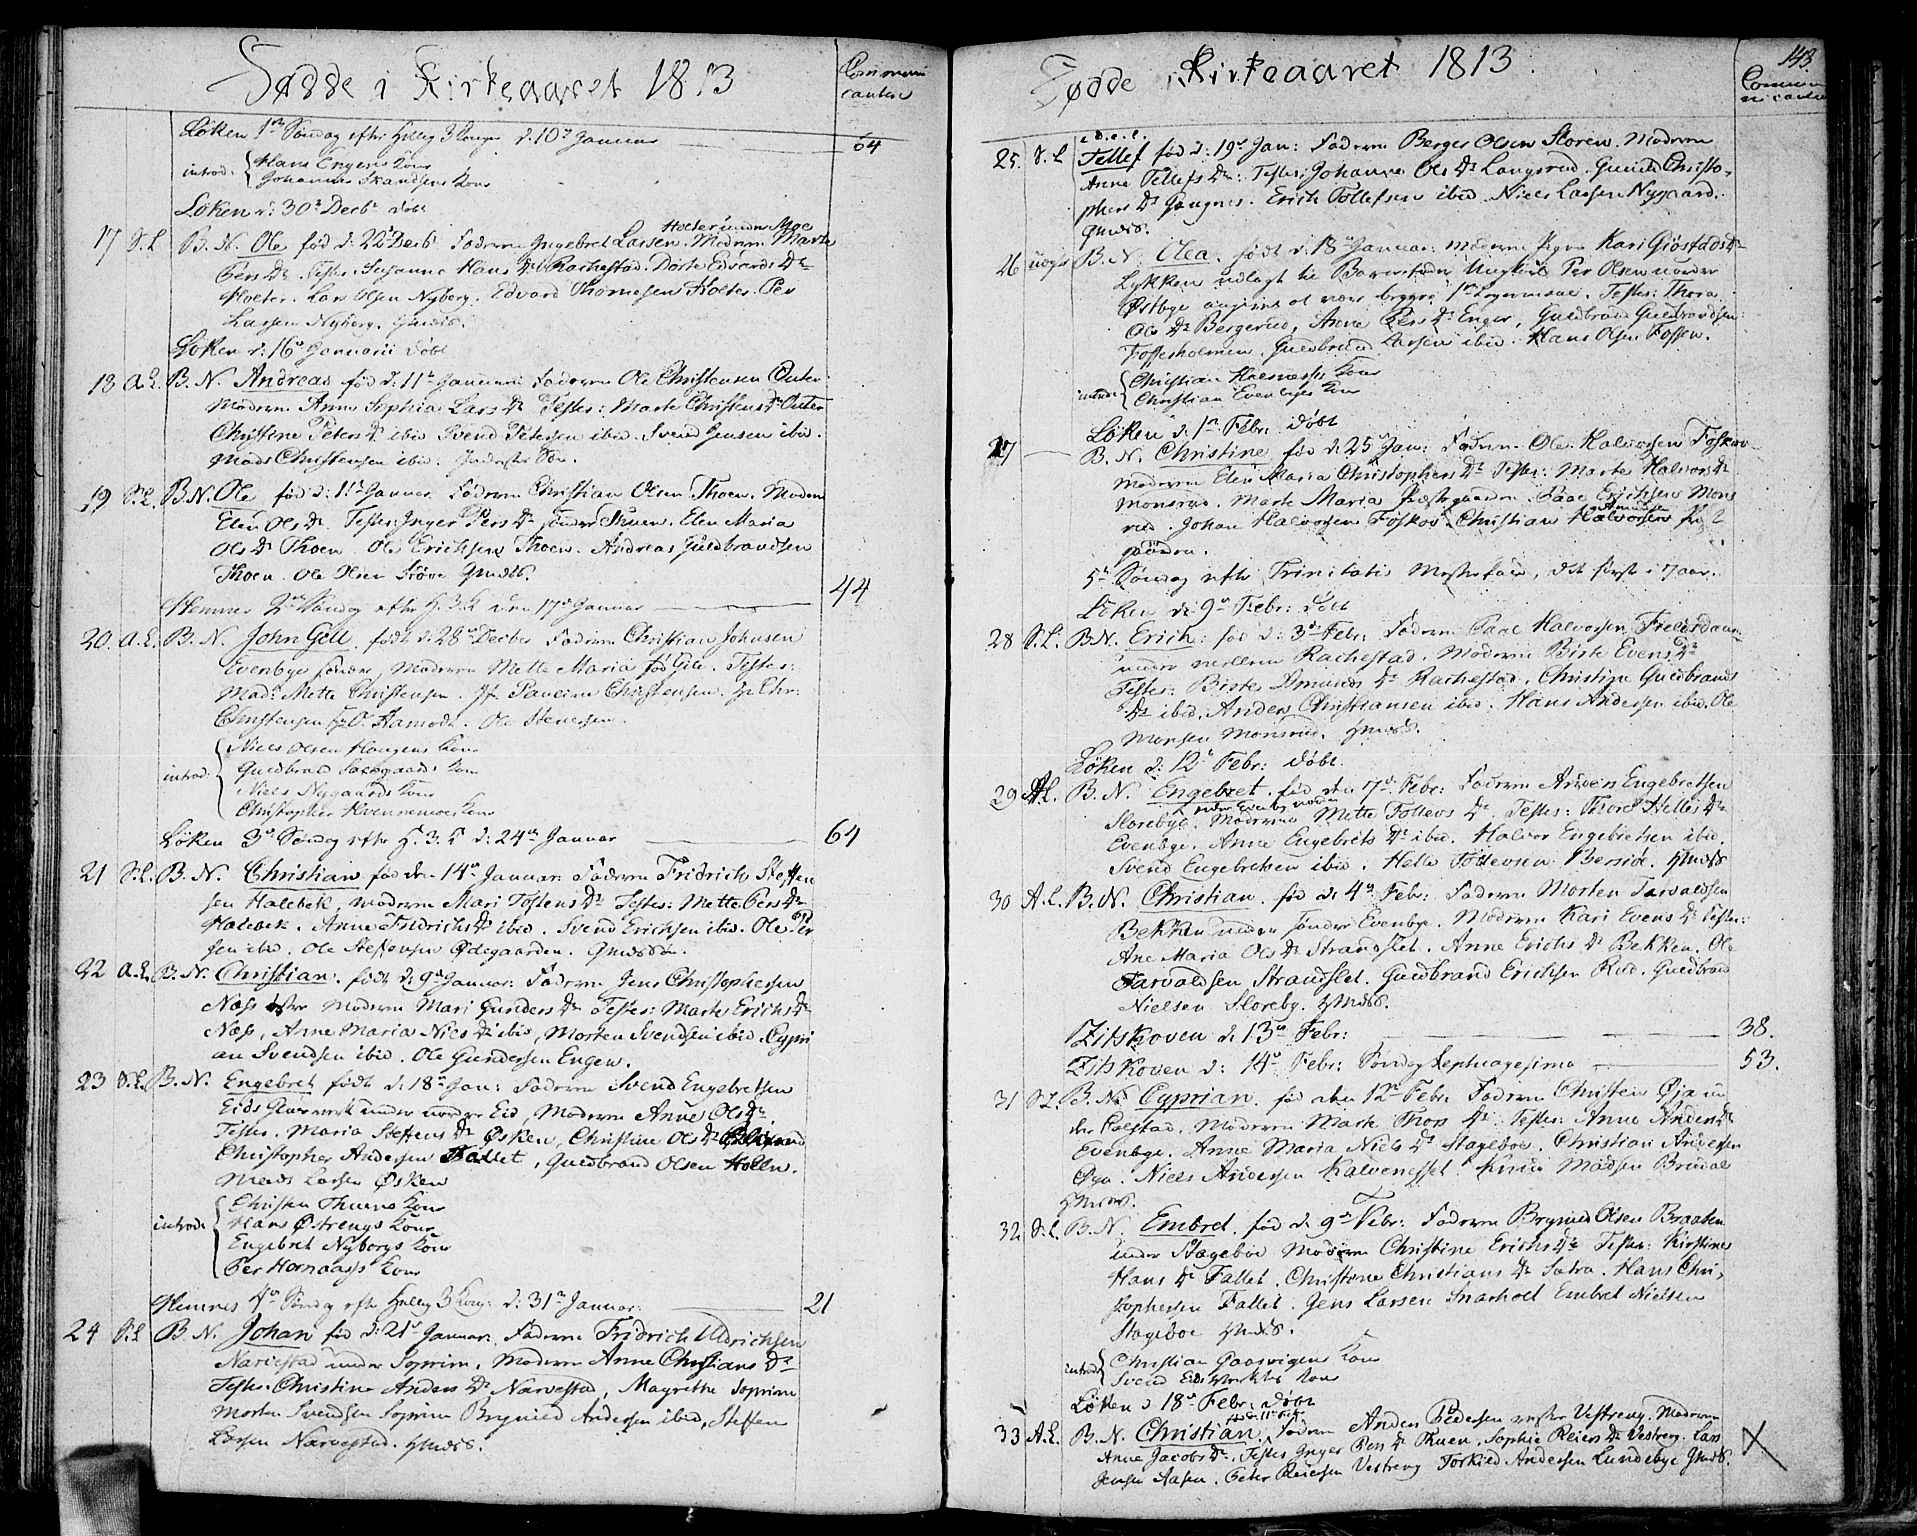 Fødde i Kirkeaaret 1813
Communi
cantere
Løken 1te Søndag efter Hellig 3 Konger d: 10de Januar 64
introd: Hans Engens Kone
Johannes Skandsens Kone
Løken d: 30te Decbr døbt
17 S.L. B.N. Ole fød d: 22de Decb Faderen Ingebret Larsen Holter under Moe Moderen Marte
Pers Dr Test: Susanna Hans Dr Rachestad. Dorte Edvards Dr
Holter. Lars Olsen Nyborg. Edvard Thomesen Holter. Per
Larsen Nyborg. Gmds.
Løken d: 16de Januarii døbt
18 A.L. B.N. Andreas fød d: 11te Januari Faderen Ole Christensen Outer
Moderen Anne Sophia Lars Dr Test: Marte Christens Dr Outer
Christine Peters Dr ibid Svend Petersen ibid. Svend Jensen ibid.
Mads Christensen ibid.
19 S.L. B.N. Ole fød d: 11te Januar Faderen Christian Olsen Thoen. Moderen
Elen Ols Dr Test: Inger Pers Dr Søndre Thuen. Elen Maria
Ols Dr Thoen. Ole Erichsen Thoen. Andreas Guldbrandsen
Thoen. Ole Olsen Gmds.
Hemnes 2den Søndag efter H. 3 K den 17de Januar 44
20 A.L. B.N. John Gell født d: 28de Decbr Faderen Christian Johnsen
Evenbye søndre, Moderen Mette Maria fød Gell. Test:
Mad: Mette Christensen. Jf Christensen. Hr Chr:
Christensen Hr O. Aamodt. Ole
introd: Niels Olsen Haugens Kone
Guldbrand Kone
Niels Nygaards Kone
Christopher Kone
Løken 3de Søndag efter H. 3. K d: 24de Januar 64
21 S.L. B.N. Christian fød den 14de Januar Faderen Fridrich Steffen
sen Holebek, Moderen Mari Tostens Dr Test: Mette Pers Dr
Holebek. Anne Fridrichs Dr ibid. Svend Erichsen ibid. Ole Per
sen ibid. Ole Steffensen Ødegaarden.
22 A.L. B.N. Christian. født d: 9de Januar. Faderen Jens Christophersen
Næss Moderen Mari Gunders Dr Test: Marte Erichs Dr
Næss, Anne Maria Niels Dr ibid, Morten Svendsen ibid. Cypri
an Svendsen ibid. Ole Gundersen Engen.
23 S.L. B.N. Engebret født d: 18de Jan: Faderen Svend Engebretsen
Eids under nordre Eid, Moderen Anne Ols Dr
Test. Maria Steffens Dr Øsken, Christine Ols Dr
Christopher Andersen Fallet, Guldbrand Olsen Holen.
Mads Larsen Øsken
introd: Christen Thuens Kone
Hans Kone
Engebret Nyborgs Kone
Per Hornaass Kone
Hemnes 4de Søndag efter Hellig 3 Kong: d: 31te Januar: 21
24 S.L. B.N. Johan fød d: 21de Januar. Faderen Fridrich Uldrichsen
Narvestad under Soprim. Moderen Anne Christians Dr
Test: Christine Anders Dr Narvestad, Magrethe Soprim
Morten Svendsen Soprim Brynild Andersen ibid, Steffen
Larsen Narvestad. Gmds.
Fødde i Kirkeaaret 1813.
143
Commu
nicantere
25. S.L. Tellef fød d: 19de Jan: Faderen Berger Olsen Floren. Moderen
Anne Tellefs Dr: Test: Johanne Ols Dr Langsrud. Gunild Christo-
phers Dr Gangnes. Erich Tollefsen ibid. Niels Larsen Nygaard.
Gmds.
26 uægte B.N. Olea. født d. 18de Januar: Moderen Pigen Kari Giøstads Dr
Lykken udlagt til Barnefader Ungkarl Per Olsen nordre
Østbye angivet at være begges 1te Leyermaal. Test: Thora
Ols Dr Bergerud, Anne Pers Dr Enger, Guldbrand Guldbrandsen
Fossesholmen. Guldbrand Larsen ibid. Hans Olsen Fossen.
introd: Christian Halsnæss Kone
Christian Evenbyes Kone
Løken d. 1te Febr. døbt
27 B.N. Christine fød d: 25de Jan: Faderen Ole Halvorsen Foskov
Moderen Elen Maria Christophers Dr Test: Marte Halvors Dr
Monsrud. Marte Maria Præstegaarden. Paal Erichsen Mons
rud. Johan Halvorsen Foskov. Christian Halvorsen
gaarden.
5te Søndag efter Trinitatis Messefald, det første i 7 aar.
Løken d: 9de Febr: døbt
28 S.L. B.N. Erich: fød d: 3de Febr: Faderen Paal Halvorsen
under mellem Rachestad. Moderen Birte Evens Dr
Test: Birte Amunds Dr Rachestad. Christine Guldbrands
Dr ibid. Anders Christiansen ibid. Hans Andersen ibid. Ole
Monsen Monsrud. Gmds.
Løken d: 12te Febr: døbt.
29 A.L. B.N. Engebret. fød den 7de Febr: Faderen Anders Engebretsen
Slorebye under Evenby nordre Moderen Mette Tollevs Dr Test: Thore Helles Dr
Evenbye. Anne Engebrets Dr ibid. Halvor Engebretsen ibid.
Svend Engebretsen ibid. Helle Tollevsen Gmds
30 A.L. B.N. Christian. fød d: 4de Febr: Faderen Morten Tarvaldsen
Bekken under søndre Evenbye. Moderen Kari Evens Dr Test:
Ane Maria Ols Dr Strandslet. Anne Erichs Dr Bekken. Ole
Tarvaldsen Strandslet. Guldbrand Erichsen Rud. Guldbrand
Nielsen Slorebye. Gmds.
Zitskoven d. 13de Febr: 38.
Zitskoven d: 14de Febr: Søndag Septuagesima 53.
31 S.L. B.N. Cyprian. fød den 12te Febr. Faderen Christen Øja un
der Moderen Marte Thors Dr Test: Anne Anders Dr
Evenbye. Anne Maria Niels Dr Stageboe. Christian Andersen
Øya. Niels Andersen Kalvenesset. Knud Madsen Brudal
Gmds.
32 S.L. B.N. Embret. fød d. 9de Febr: Faderen Brynild Olsen Braaten
under Stageboe Moderen Christine Erichs Dr Test: Kirstine
Hans Dr Fallet. Christine Christians Dr Sætra. Hans Chri-
stophersen Fallet. Jens Larsen Snarholt Embret Nielsen
Stageboe Gmds.
introd: Christian Gaasvigens Kone
Svend Eids Kone
Løken d 18de Febr: døbt
33 A.L. B.N. Christian. fød d. 11te Febr Faderen Anders Pedersen vestre Vestreng. Moderen
Anne Jacobs Dr. Test: Inger Pers Dr Thuen, Sophie Reiers Dr Vestreng. Lars
Jensen Aasen. Peter Reiersen Vestreng Torkild Andersen Lundebye Gmds.
X